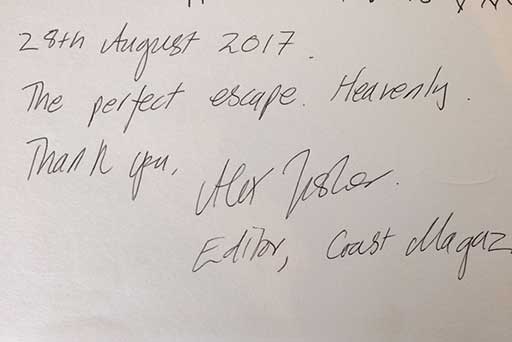 28th August 2017.
The perfect escape. Heavenly.
Thank you,
Alex Fisher.
Editor, Coast Magaz